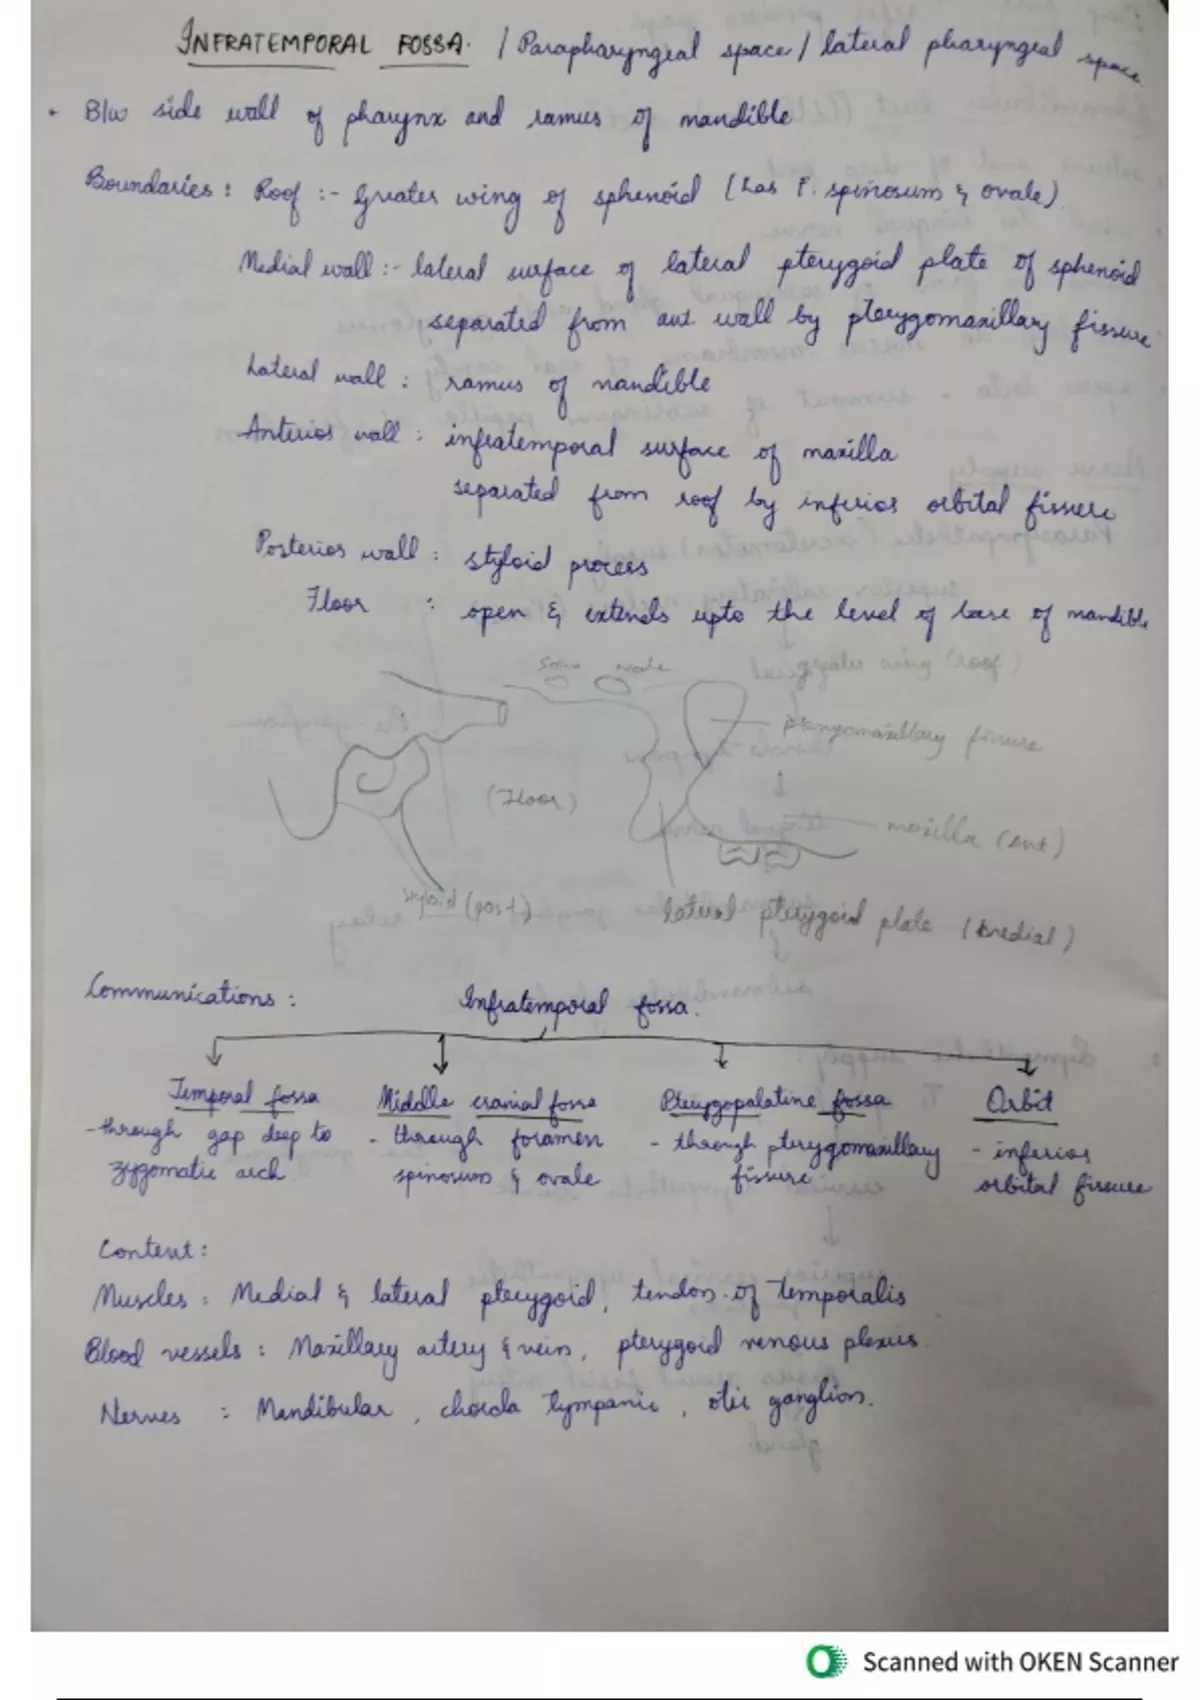 INFRATEMPORAL FOSSA. / Parapharyngeal space / lateral pharyngeal space
• B/w side wall of pharynx and ramus of mandible
Boundaries : Roof :- Greater wing of sphenoid (has F. spinosum & ovale)
Medial wall :- lateral surface of lateral pterygoid plate of sphenoid
separated from ant. wall by pterygomaxillary fissure
Lateral wall : ramus of mandible
Anterior wall : infratemporal surface of maxilla
separated from roof by inferior orbital fissure
Posterior wall : styloid process
Floor : open & extends upto the level of base of mandible
ovale
greater wing (roof)
pterygomaxillary fissure
(Floor)
maxilla (ant)
styloid (post.)
lateral pterygoid plate (medial)
Communications : Infratemporal fossa.
Temporal fossa Middle cranial fossa Pterygopalatine fossa Orbit
- through gap deep to - through foramen - through pterygomaxillary - inferior
zygomatic arch spinosum & ovale fissure orbital fissure
Content :
Muscles : Medial & lateral pterygoid, tendon of temporalis
Blood vessels : Maxillary artery & vein, pterygoid venous plexus.
Nerves : Mandibular, chorda tympanic, otic ganglion.
Scanned with OKEN Scanner